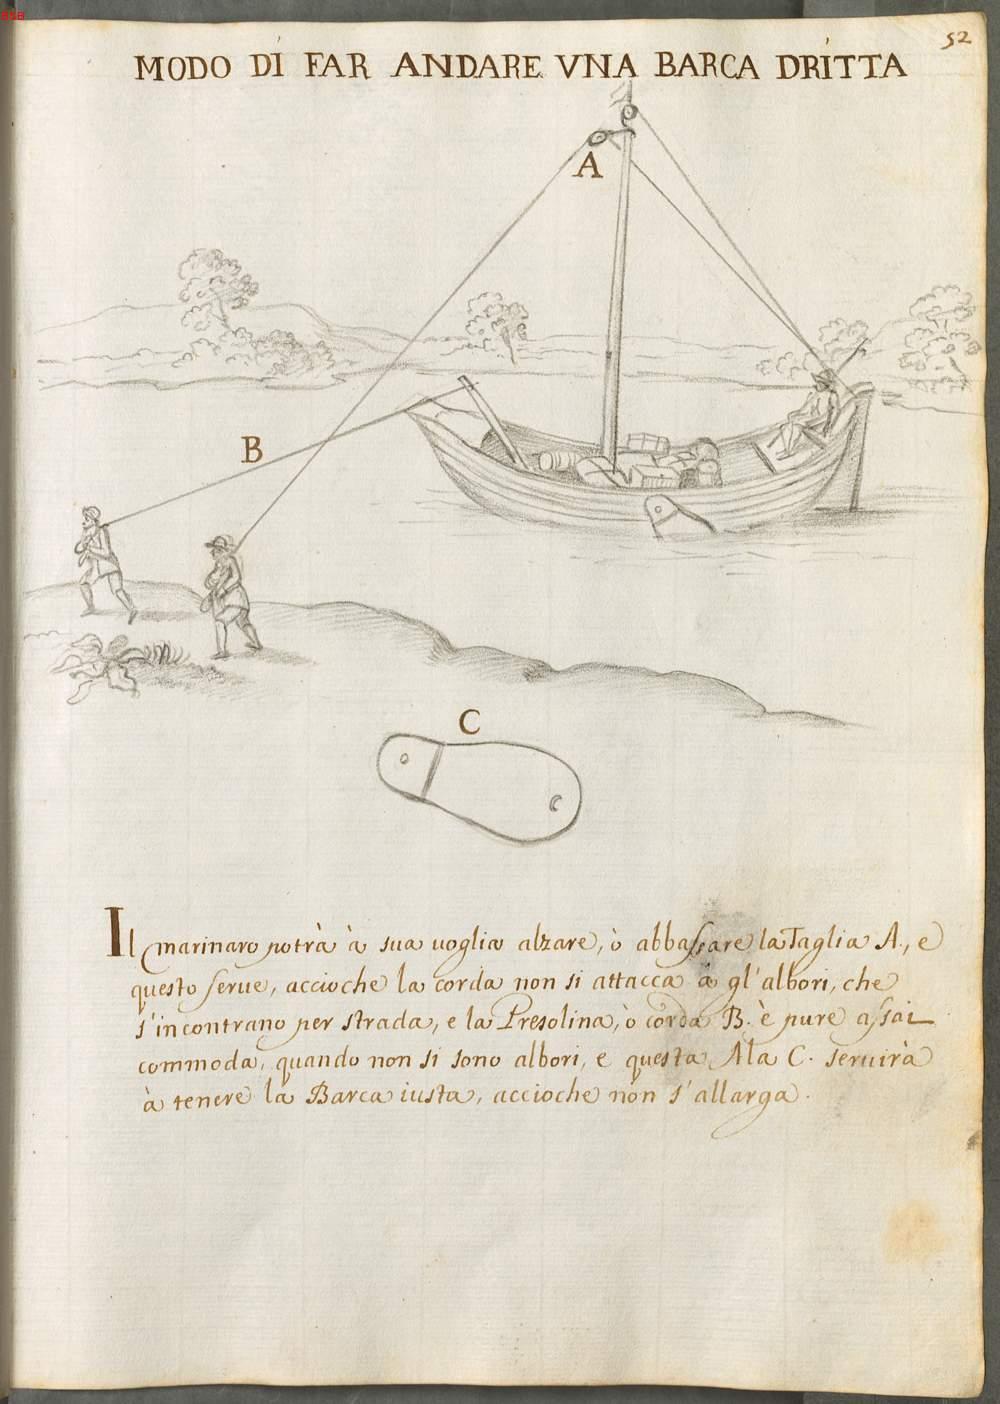 BSB
52
MODO DI FAR ANDARE VNA BARCA DRITTA
A
B
C
Il marinaro potrà à sua uoglia alzare, ò abbassare la Taglia A., e
questo serue, accioche la corda non si attacca à gl'albori, che
s'incontrano per strada, e la Presolina, ò corda B. è pure assai
commoda, quando non si sono albori, e questa Ala C. seruirà
à tenere la Barca iusta, accioche non s'allarga.